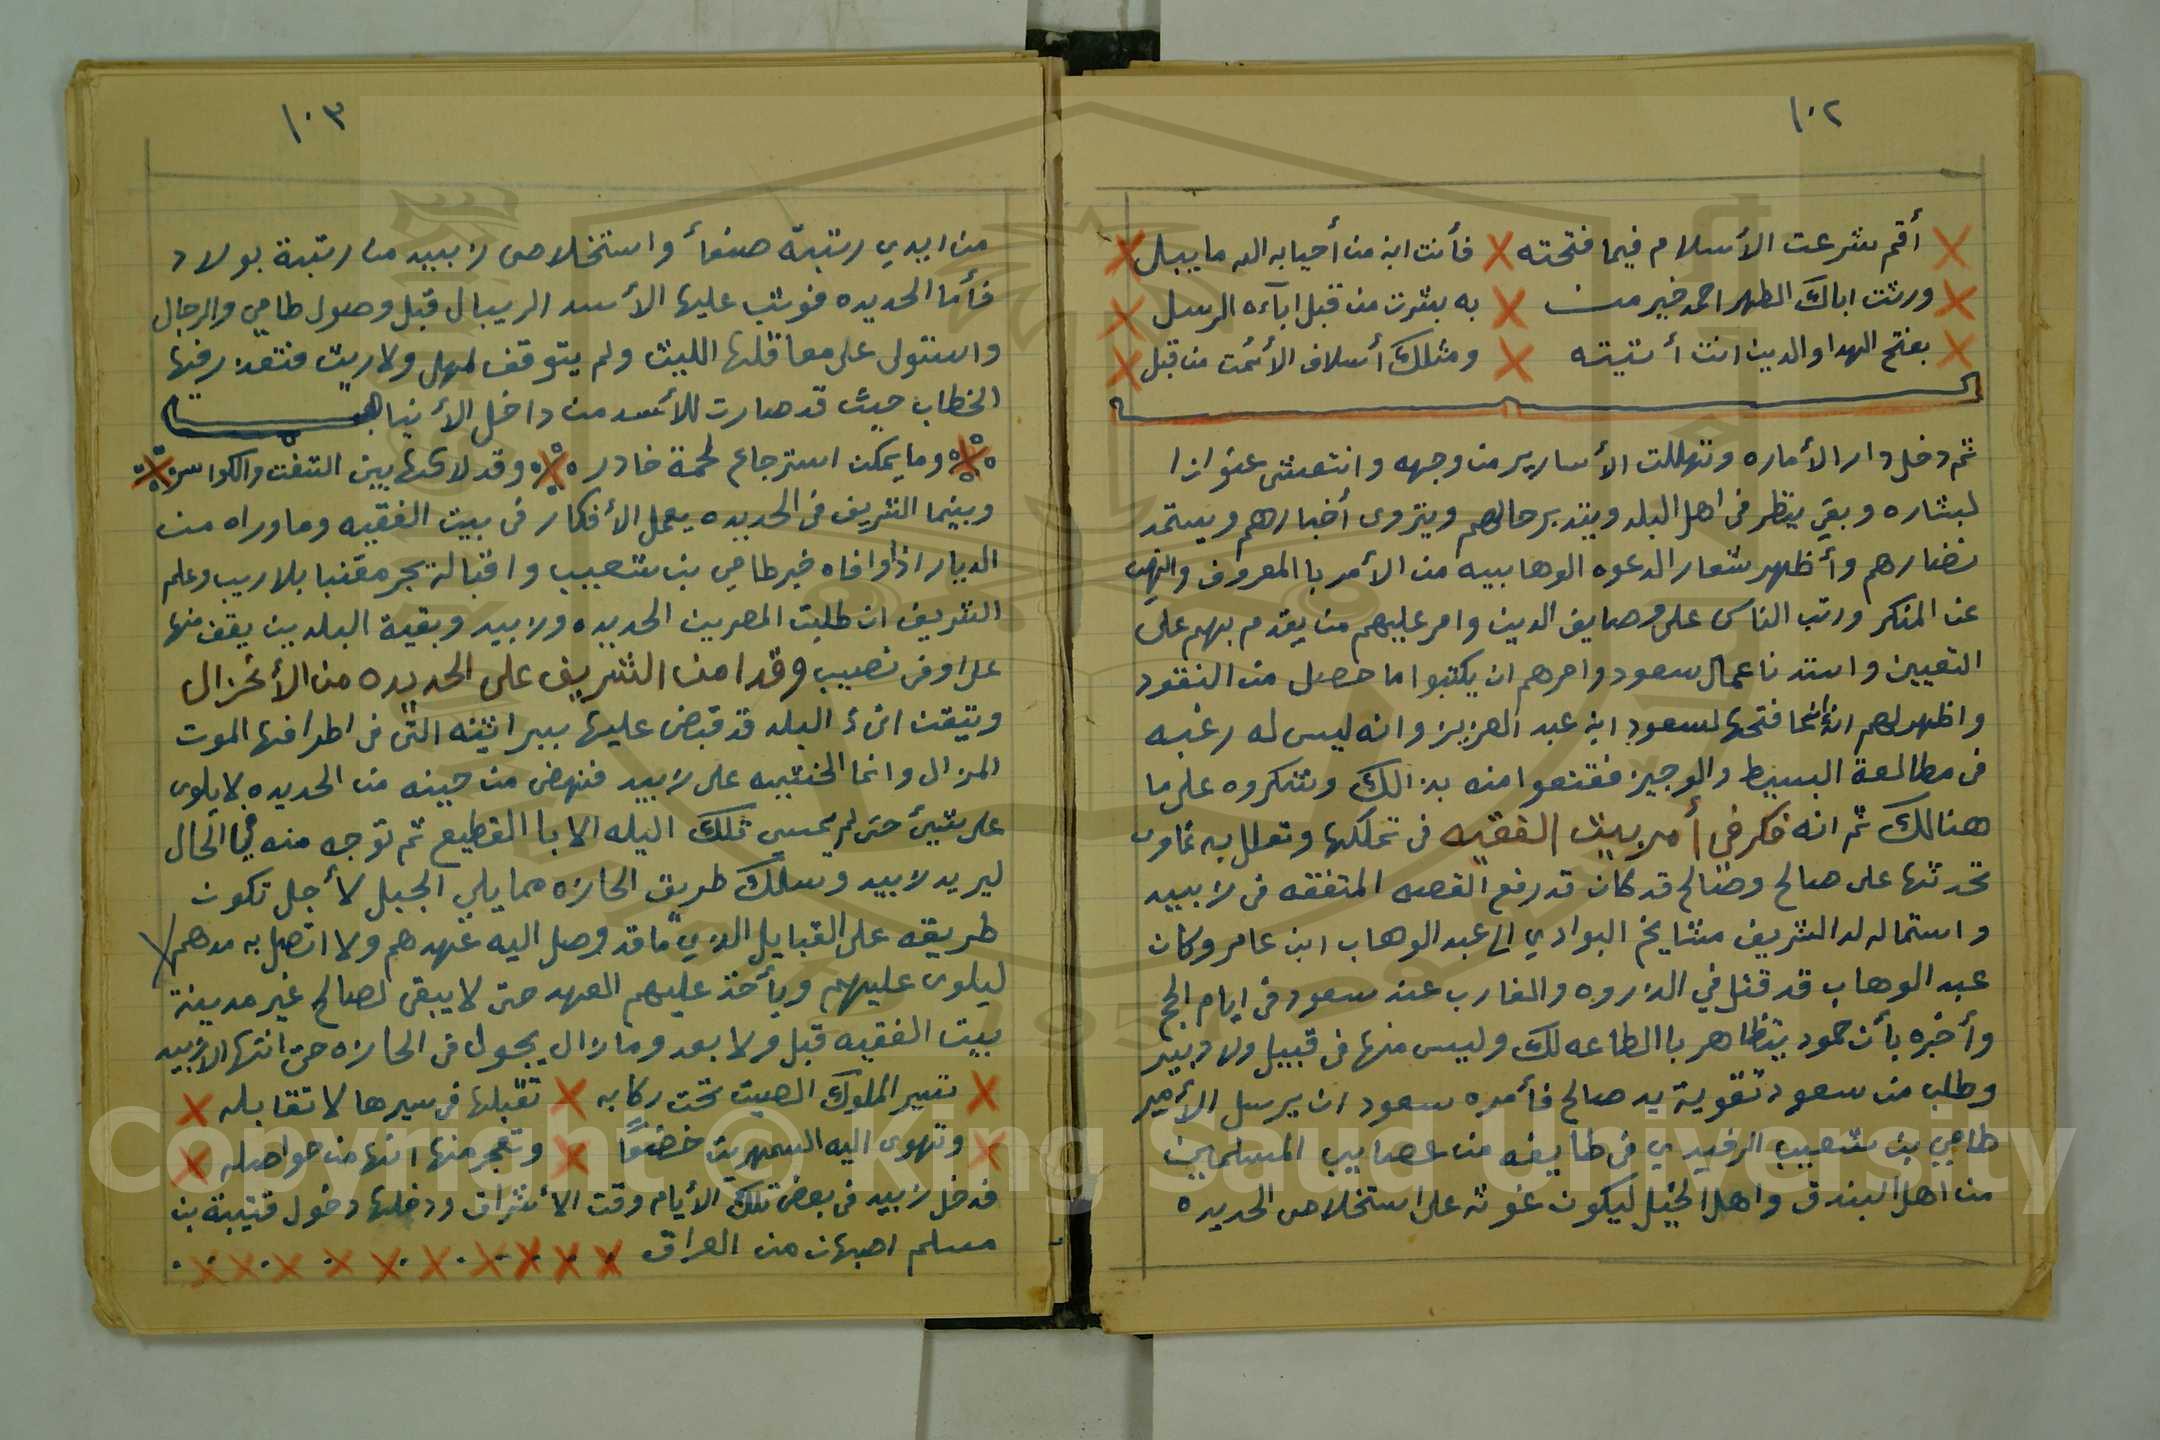 ١٠٢
أقم شرعت الأسلام فيما فتحته فأنت ابن من أحيا به الله ما يبل
ورثت اباك الطهر احمد خير من به بشرت من قبل ابآءه الرسل
بفتح الهدا والدين انت أتيته ومثلك أسلاف الأئمت من قبل
ثم دخل دار الأماره وتهللت الأسارير من وجهه وانتعش عنوانا
لبشاره وبقي ينظر في اهل البلد ويتدبر حالهم ويتروى أخبارهم ويستمد
نضارهم وأظهر شعار الدعوه الوهابيه من الأمر با المعروف والنهي
عن المنكر ورتب الناس على وصايف الدين وامر عليهم من يقدم بهم على
التعيين واستدنا عمال سعود وامرهم ان يكتبوا ما حصل من النقود
واظهر لهم انه انما فتحها لسعود ابن عبد العزيز وانه ليس له رغبه
في مطالعة البسيط والوجيز فقنعوا منه بذالك وشكروه على ما
هنالك ثم انه فكر في أمر بيت الفقيه في تملكها وتعلل به
على صالح وصالح قد كان قد رفع القصه المتفقه في زبيد
واستماله لد الشريف مشايخ البوادي الى عبد الوهاب ابن عامر وكان
عبد الوهاب قد قتل في الذروه والمغارب عند سعود في ايام الحج
وأخبره بأن حمود يتظاهر با الطاعه لك وليس منها في قبيل ولا دبير
وطلب من سعود تقوية يد صالح فأمده سعود ان يرسل الأمير
طامي بن شعيب الرفيدي في طايفه من عصايب المسلمين
من اهل البندق واهل الخيل ليكون غوثه على استخلاص الحديده
١٠٣
من ايدي رتبة صنعأ واستخلاص زابيد من رتبة بولاد
فأما الحديده فوثب عليها الأسد الريبال قبل وصول طامي والرجال
واستولى على معاقلها الليث ولم يتوقف لمهل ولا ريث فتعذر فيها
الخطاب حيث قد صارت للأسد من داخل الأنياب
وما يمكن استرجاع لحمة خادر وقد لاكها بين الشفت والكواسر
وبينما الشريف في الحديده يعمل الأفكار في بيت الفقيه وما وراه من
الديار اذا وافاه خبر طامي بن شعيب واقباله يجر مقنبا بلا ريب وعلم
الشريف ان طلبت المصرين الحديده وزبيد وبقية البلدين يقف منها
على اوفى نصيب وقد امن الشريف على الحديده من الأنخزال
وتيقن ان البلد قد قبض عليها ببراثينه التي في اطرافها الموت
الزال وانما الخشيه على زبيد فنهض من حينه من الحديده لا يلوى
على شيئ حتى لم يمسي تلك اليله الا با القطيع ثم توجه منه في الحال
ليريد زبيد وسلك طريق الحازه مما يلي الجبل لأجل تكون
طريقه على القبايل الذي ما قد وصل اليه عهدهم ولا اتصل به مدهم
ليلوى عليهم ويأخذ عليهم العهد حتى لا يبقى لصالح غير مدينة
بيت الفقيه قبل ولا بعد وما زال يجول في الحازه حتى انتها الا زبيد
تسير الملوك الصيت تحت ركابه تقبلها في سيرها لا تقابله
وتهوى اليه السمهريت خضعًا وتعجز منها انها من حواصله
فدخل زبيد في بعض تلك الأيام وقت الأشراق ودخلها دخول قتيبة بن
مسلم اصبهان من العراق
Copyright © King Saud University
1957